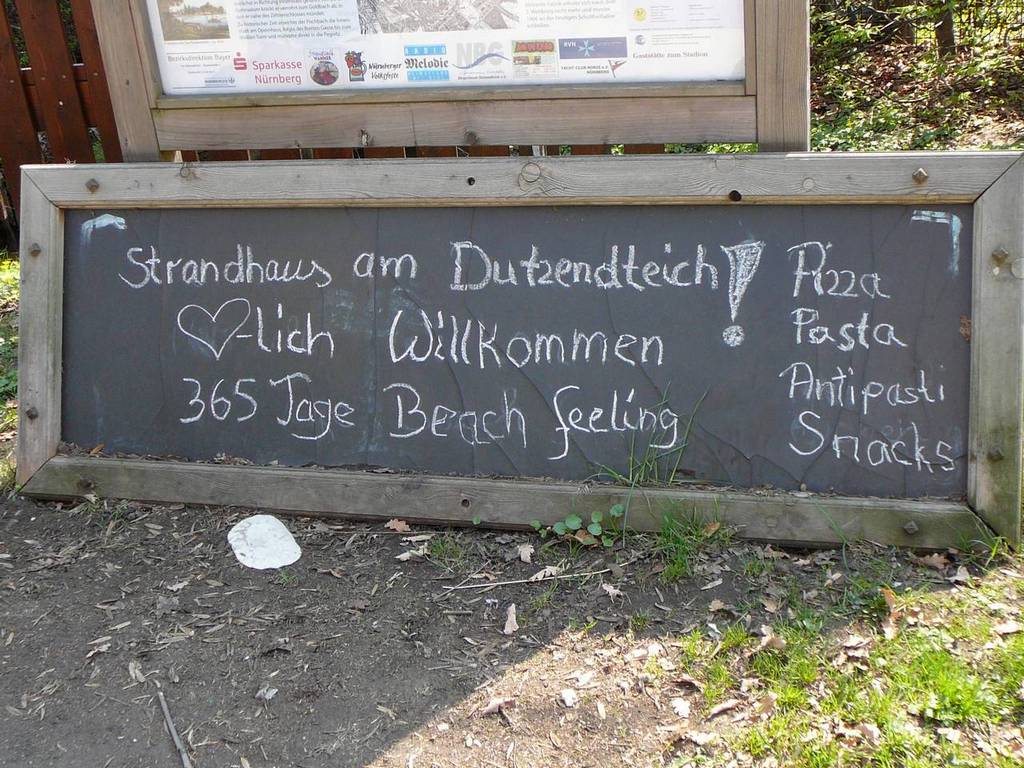 Bezirksdirektion Bayer
Sparkasse
Nürnberg
Nürnberger
Volksfeste
RADIO
Melodie
NRC
RVN
YACHT CLUB NORIS e.V.
NÜRNBERG
Gaststätte zum Stadion
Strandhaus am Dutzendteich!
♥-lich Willkommen
365 Tage Beach feeling
Pizza
Pasta
Antipasti
Snacks